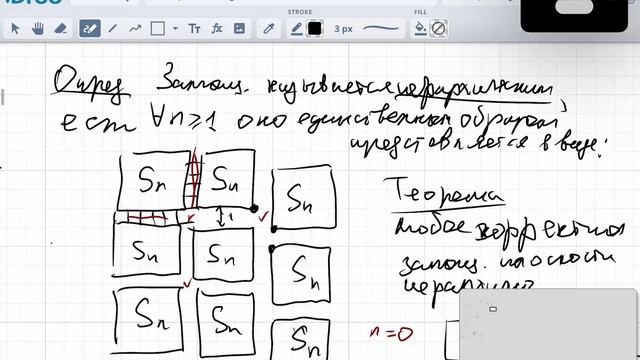 STROKE
FILL
3 px
Tт
fx
Опред Замощ. называется иерархическим,
если ∀n≥1 оно единственным образом
представляется в виде:
Sn Sn
Sn
1
Sn Sn
Sn
Sn Sn
Sn
Теорема
любое корректное
замощ. плоскости
n=0